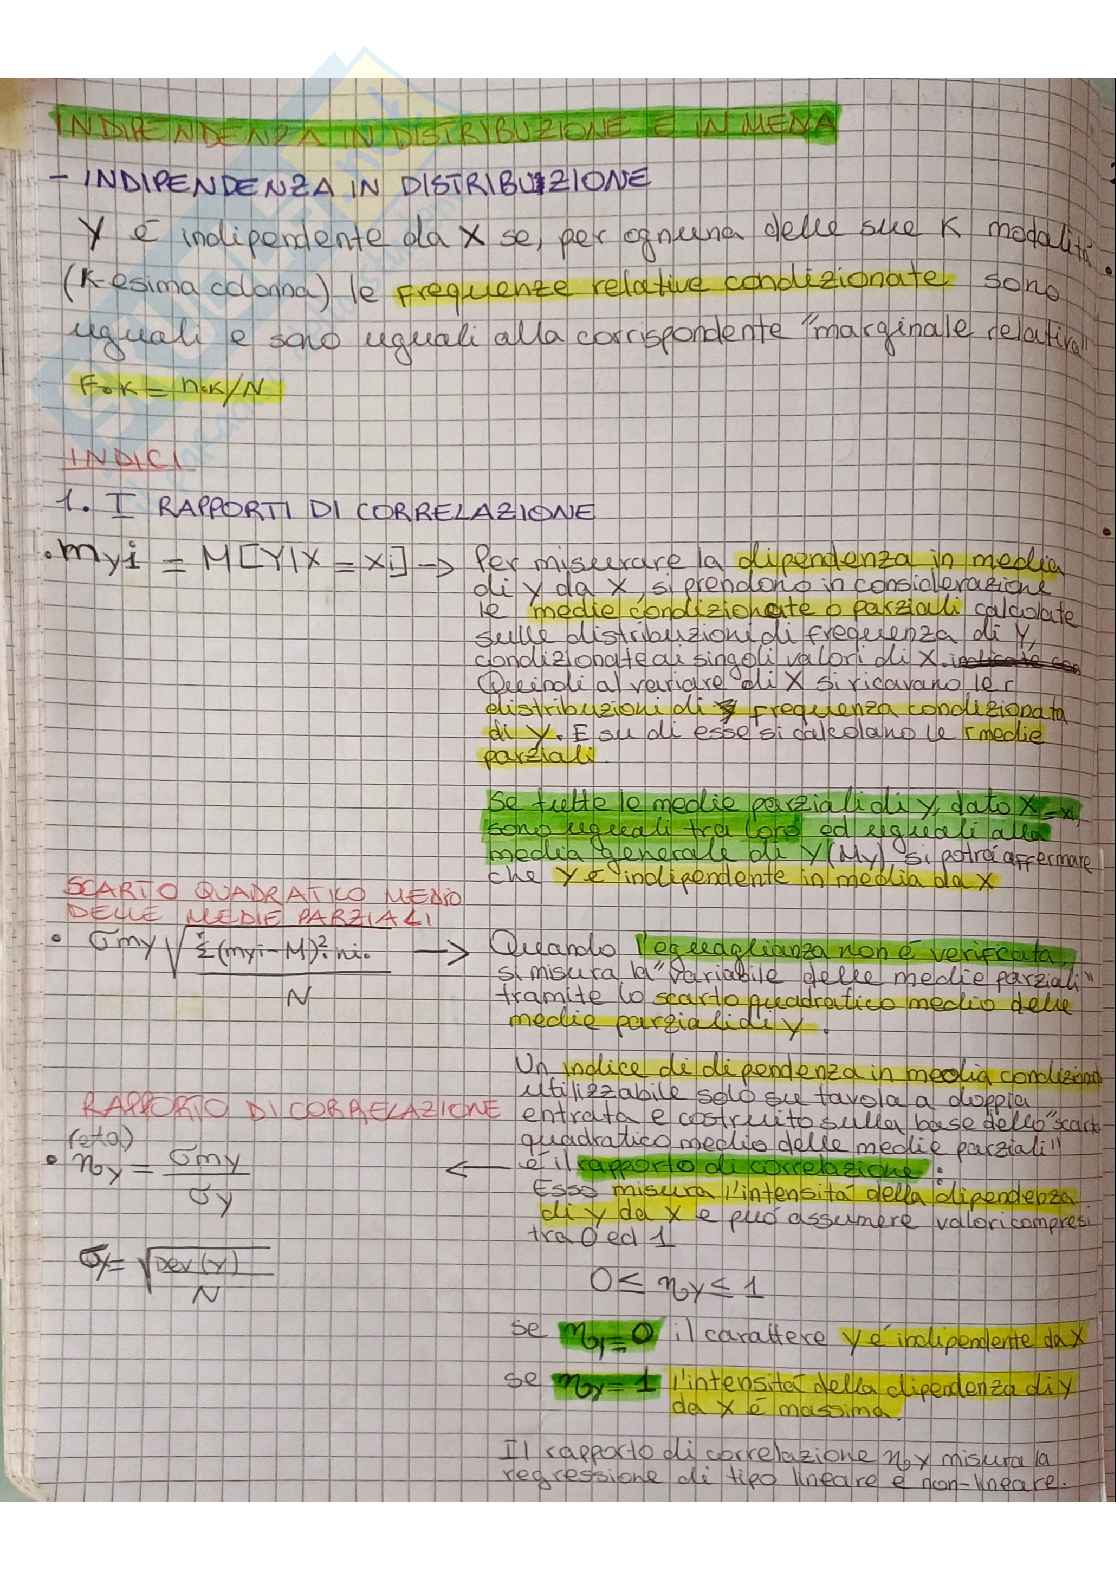 INDIPENDENZA IN DISTRIBUZIONE E IN MEDIA
- INDIPENDENZA IN DISTRIBUZIONE
Y è indipendente da X se, per ognuna delle sue K modalità
(K-esima colonna) le frequenze relative condizionate sono
uguali e sono uguali alla corrispondente "marginale relativa"
F∘K = n∘K/N
INDICI
1. I RAPPORTI DI CORRELAZIONE
• myi = M[Y|X = xi] →
Per misurare la dipendenza in media
di y da X, si prendono in considerazione
le medie condizionate o parziali calcolate
sulle distribuzioni di frequenza di Y,
condizionate ai singoli valori di X.
Quindi al variare di X si ricavano le r
distribuzioni di frequenza condizionata
di Y. E su di esse si calcolano le r medie
parziali.
Se tutte le medie parziali di y, dato X = x,
sono uguali tra loro ed uguali alla
media generale di Y (My), si potrà affermare
che Y è indipendente in media da X
SCARTO QUADRATICO MEDIO
DELLE MEDIE PARZIALI
• σmy √Σ(myi - M)²· ni∘ / N →
Quando l'eguaglianza non è verificata,
si misura la "variabile delle medie parziali"
tramite lo scarto quadratico medio delle
medie parziali di Y.
Un indice di dipendenza in media condizion
utilizzabile solo su tavola a doppia
entrata e costruito sulla base dello "scarto
quadratico medio delle medie parziali"
è il rapporto di correlazione:
Esso misura l'intensità della dipendenza
di y da X e può assumere valori compresi
tra 0 ed 1
RAPPORTO DI CORRELAZIONE
(eta)
• ηy = σmy / σy ←
σy = √Dev(y) / N
0 ≤ ηy ≤ 1
se ηy = 0 il carattere y è indipendente da X
se ηy = 1 l'intensità della dipendenza di y
da X è massima.
Il rapporto di correlazione ηy misura la
regressione di tipo lineare e non-lineare.